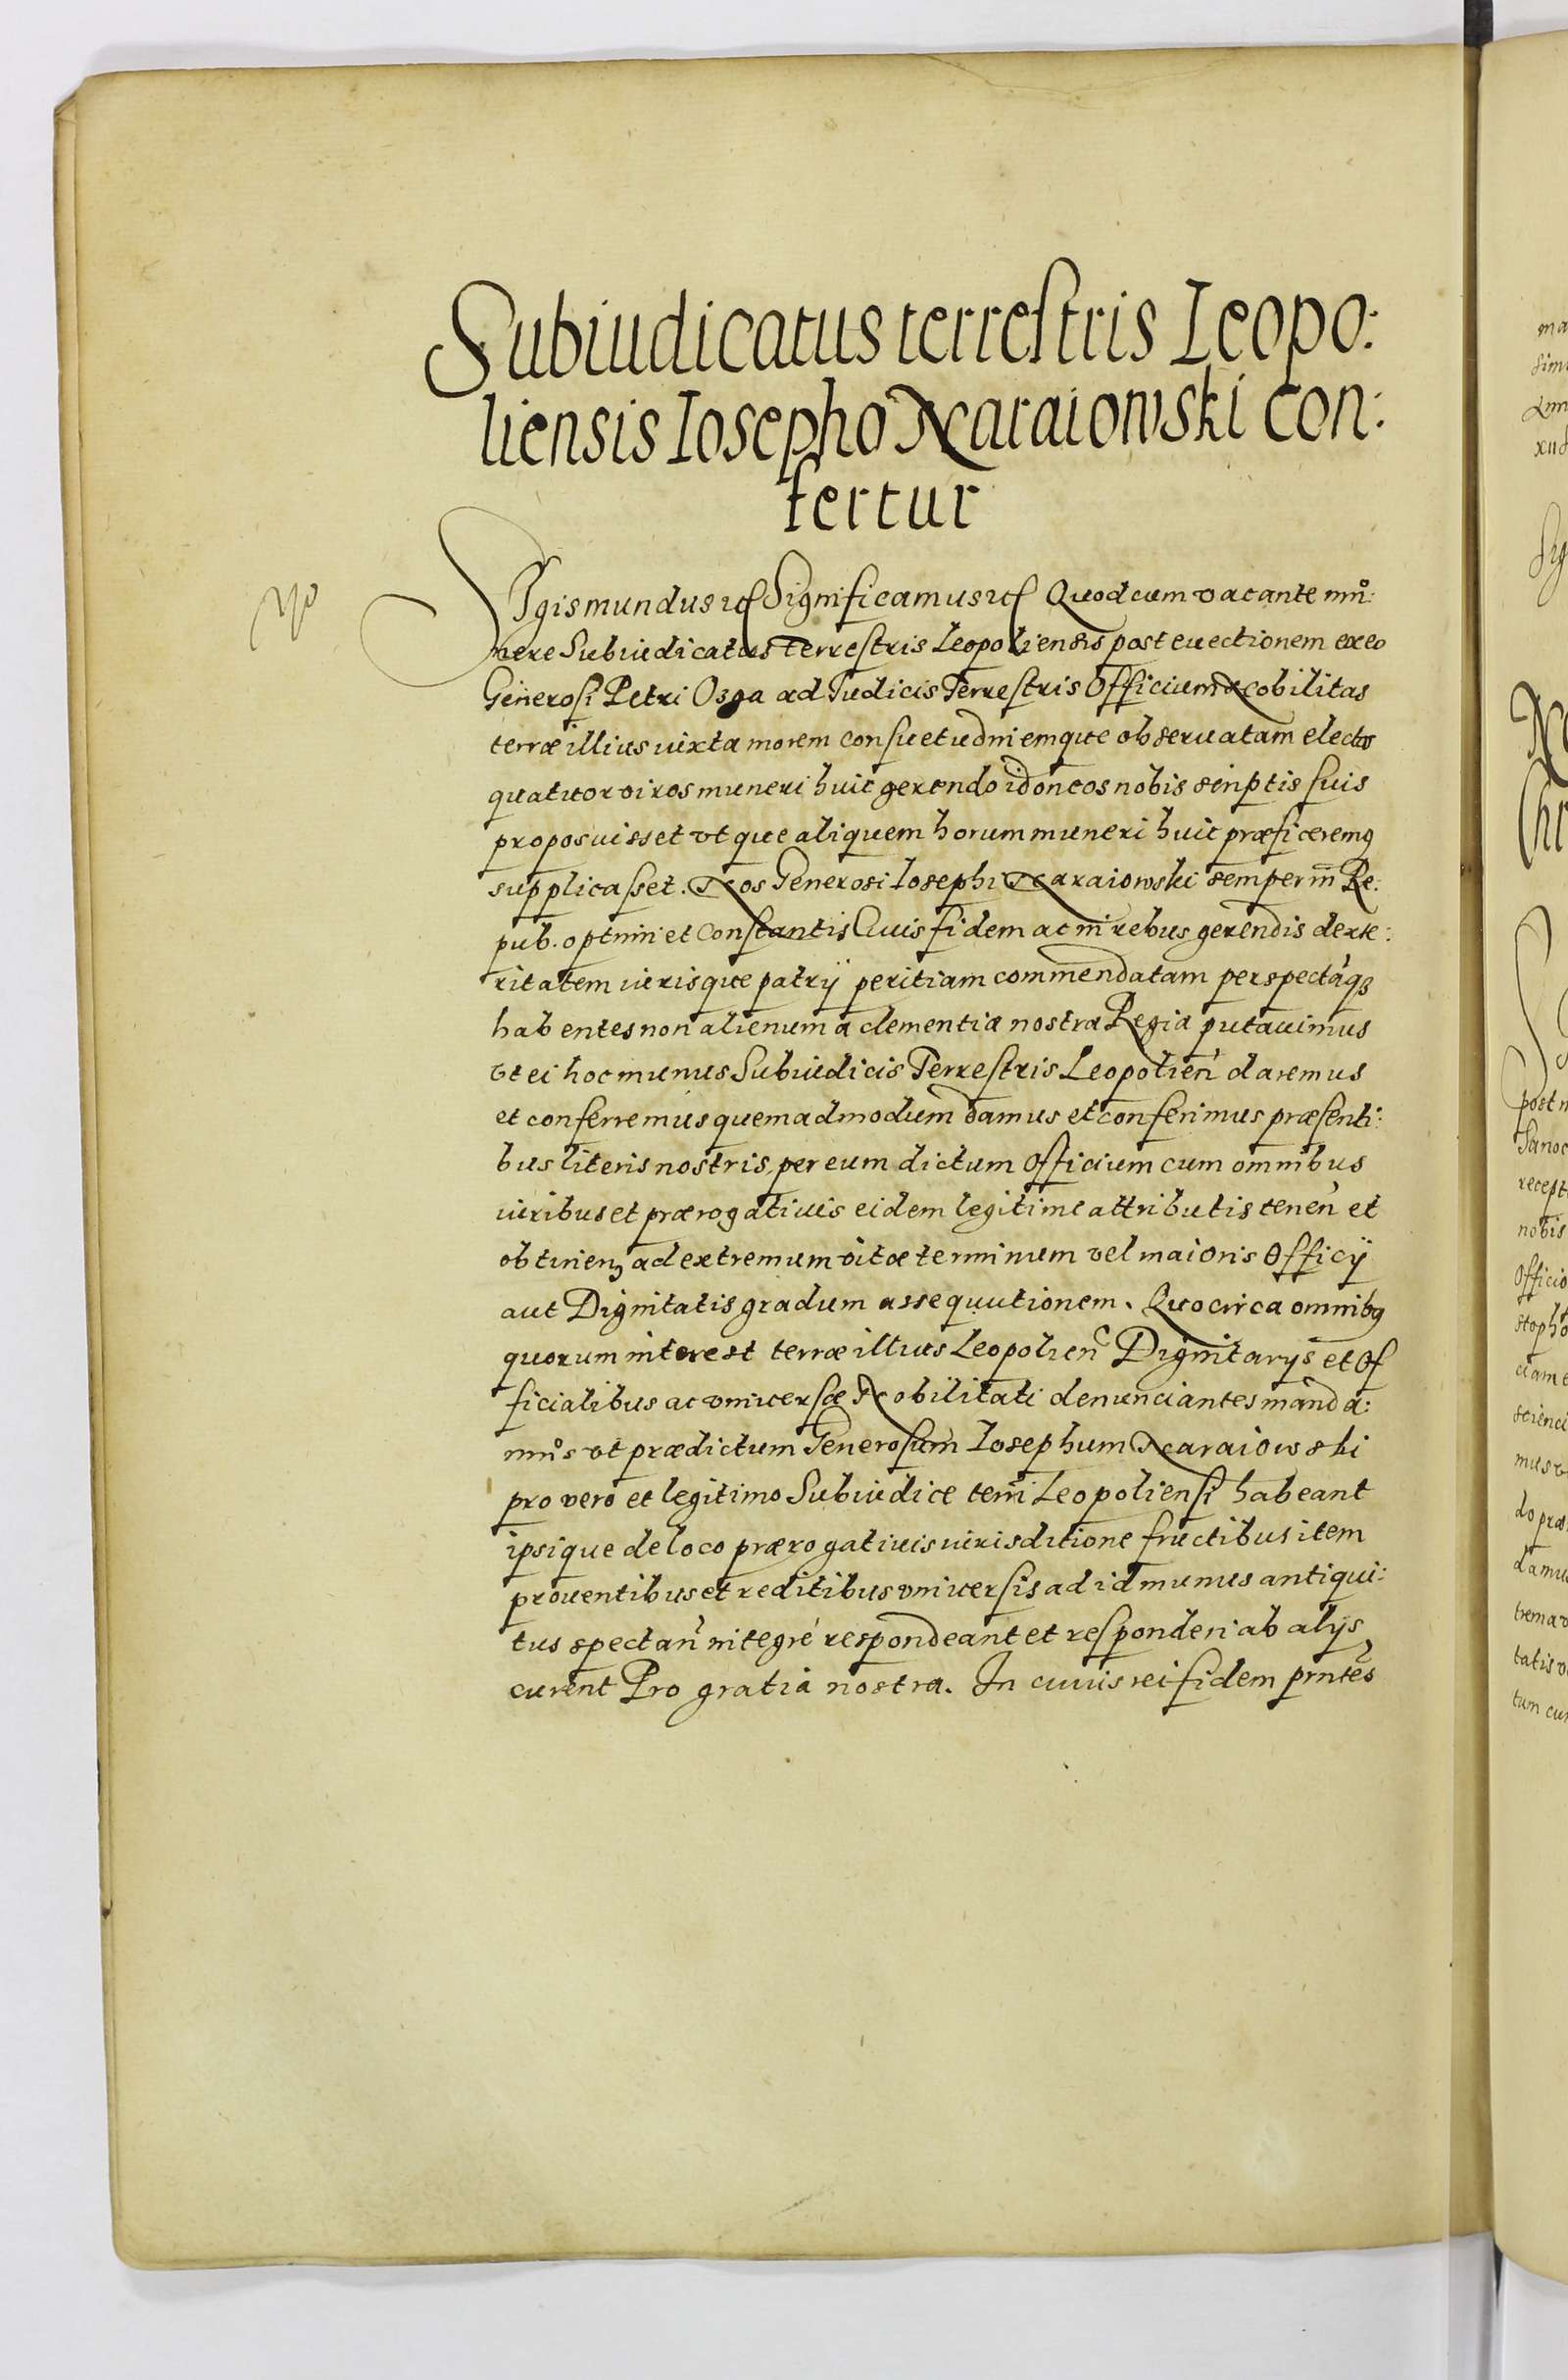 Subiudicatus terrestris Leopo:
liensis Iosepho Naraiowski con:
fertur
Sigismundus etc Significamus etc Quod cum vacante mu:
nere Subiudicatus Terrestris Leopoliensis post euectionem ex eo
Generosi Petri Ozga ad Iudicis Terrestris Officium Nobilitas
terræ illius iuxta morem consuetudinemque obseruatam electos
quatuor viros muneri huic gerendo idoneos nobis scriptis suis
proposuisset vtque aliquem horum muneri huic præficeremus
supplicasset. Nos Generosi Iosephi Naraiowski semper in Re:
pub. optimi et Constantis Ciuis fidem ac in rebus gerendis dexte:
ritatem iurisque patrij peritiam commendatam perspectamq3
habentes non alienum a clementia nostra Regia putauimus
vt ei hoc munus Subiudicis Terrestris Leopolien̄ daremus
et conferremus quemadmodum damus et conferimus præsenti:
bus literis nostris, per eum dictum Officium cum omnibus
iuribus et prærogatiuis eidem legitime attributis tenen̄ et
obtinen̄ ad extremum vitæ terminum vel maioris Officij
aut Dignitatis gradum assequutionem. Quocirca omnibus
quorum interest terræ illius Leopolien̄ Dignitarijs et Of
ficialibus ac vniuersæ Nobilitati denunciantes manda:
mus vt prædictum Generosum Iosephum Naraiowski
pro vero et legitimo Subiudice terrī Leopoliensi habeant
ipsique de loco prærogatiuis iurisditione fructibus item
prouentibus et reditibus vniuersis ad id munus antiqui:
tus spectan̄ integré respondeant et responderi ab alijs
curent Pro gratia nostra. In cuius rei fidem prntēs